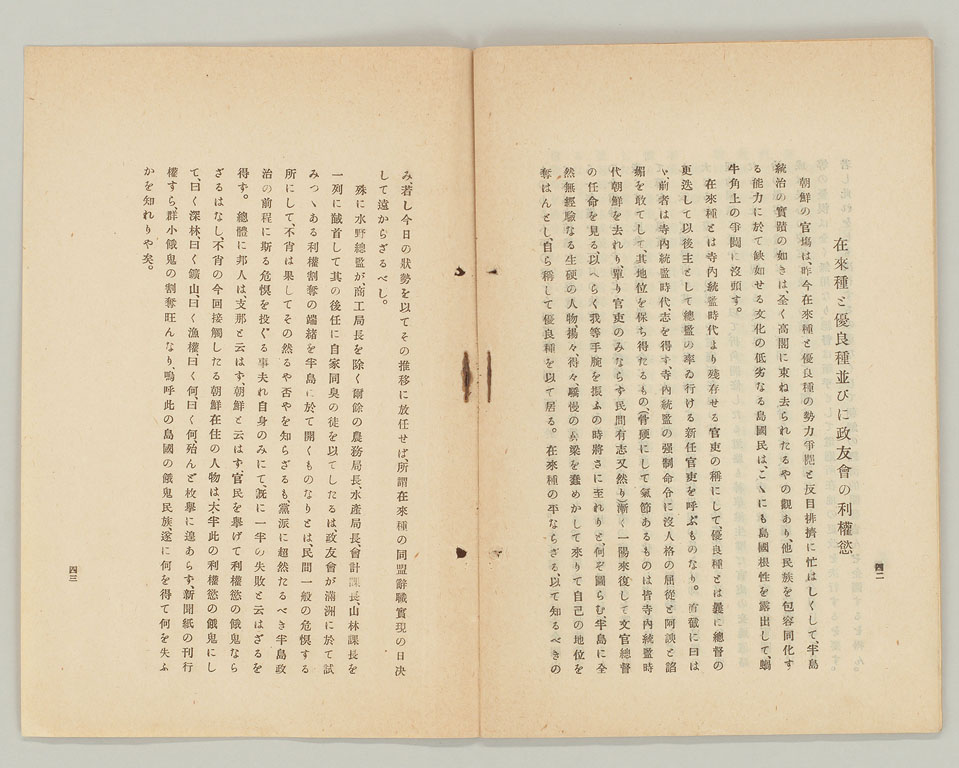 在來種と優良種並びに政友會の利權慾
朝鮮の官塲は、昨今在來種と優良種の勢力爭鬪と反目排擠に忙はしくして、半島
統治の實蹟の如きは、全く高閣に束ね去られたるやの觀あり、他民族を包容同化す
る能力に於て缺如せる文化の低劣なる島國民は、こゝにも島國根性を露出して、蝸
牛角上の爭鬪に沒頭す。
在來種とは寺內統監時代より殘存せる官吏の稱にして、優良種とは曩に總督の
更迭して以後主として總監の率ゐ行ける新任官吏を呼ぶものなり。 有髯に曰は
ゞ、前者は寺內統監時代志を得す、寺內統監の强制命令に沒人格の屈從と阿諛と諂
媚を敢てして其地位を保ち得たるもの、(骨硬にして氣節あるものは皆寺內統監時
代朝鮮を去れり單り官吏のみならず民間有志又然り)漸く一陽來復して文官總督
の任命を見る、以へらく我等手腕を振ふの時將さに至れりと、何ぞ圖らむ、半島に全
然無經驗なる生硬の人物、揚々、得々、驕慢の鼻梁を蠢めかして來りて自己の地位を
奪はんとし、自ら稱して優良種を以て居る。 在來種の平ならざる以て知るべきの
四二
み若し今日の狀勢を以てその推移に放任せば、所謂在來種の同盟辭職實現の日決
して遠からざるべし。
殊に水野總監が、商工局長を除く爾餘の農務局長、水產局長、會計課長、山林課長を
一列に馘首して其の後任に自家同臭の徒を以てしたるは、政友會が滿洲に於て試
みつゝある利權割奪の端緖を半島に於て開くものなりとは、民間一般の危惧する
所にして、不肖は果してその然るや否やを知らざるも、黨派に超然たるべき半島政
治の前程に斯る危惧を投ぐる事夫れ自身のみにて、旣に一半の失敗と云はざるを
得す。 總體に邦人は、支那と云はず、朝鮮と云はず、官民を擧げて利權慾の餓鬼なら
ざるはなし、不肖の今回接觸したる朝鮮在住の人物は、大半此の利權慾の餓鬼にし
て、曰く深林、曰く鑛山、曰く漁權、曰く何、曰く何、殆んど枚擧に遑あらず、新聞紙の刊行
權すら、群小餓鬼の割奪旺んなり、嗚呼此の島國の餓鬼民族、遂に何を得て何を失ふ
かを知れりや矣。
四三